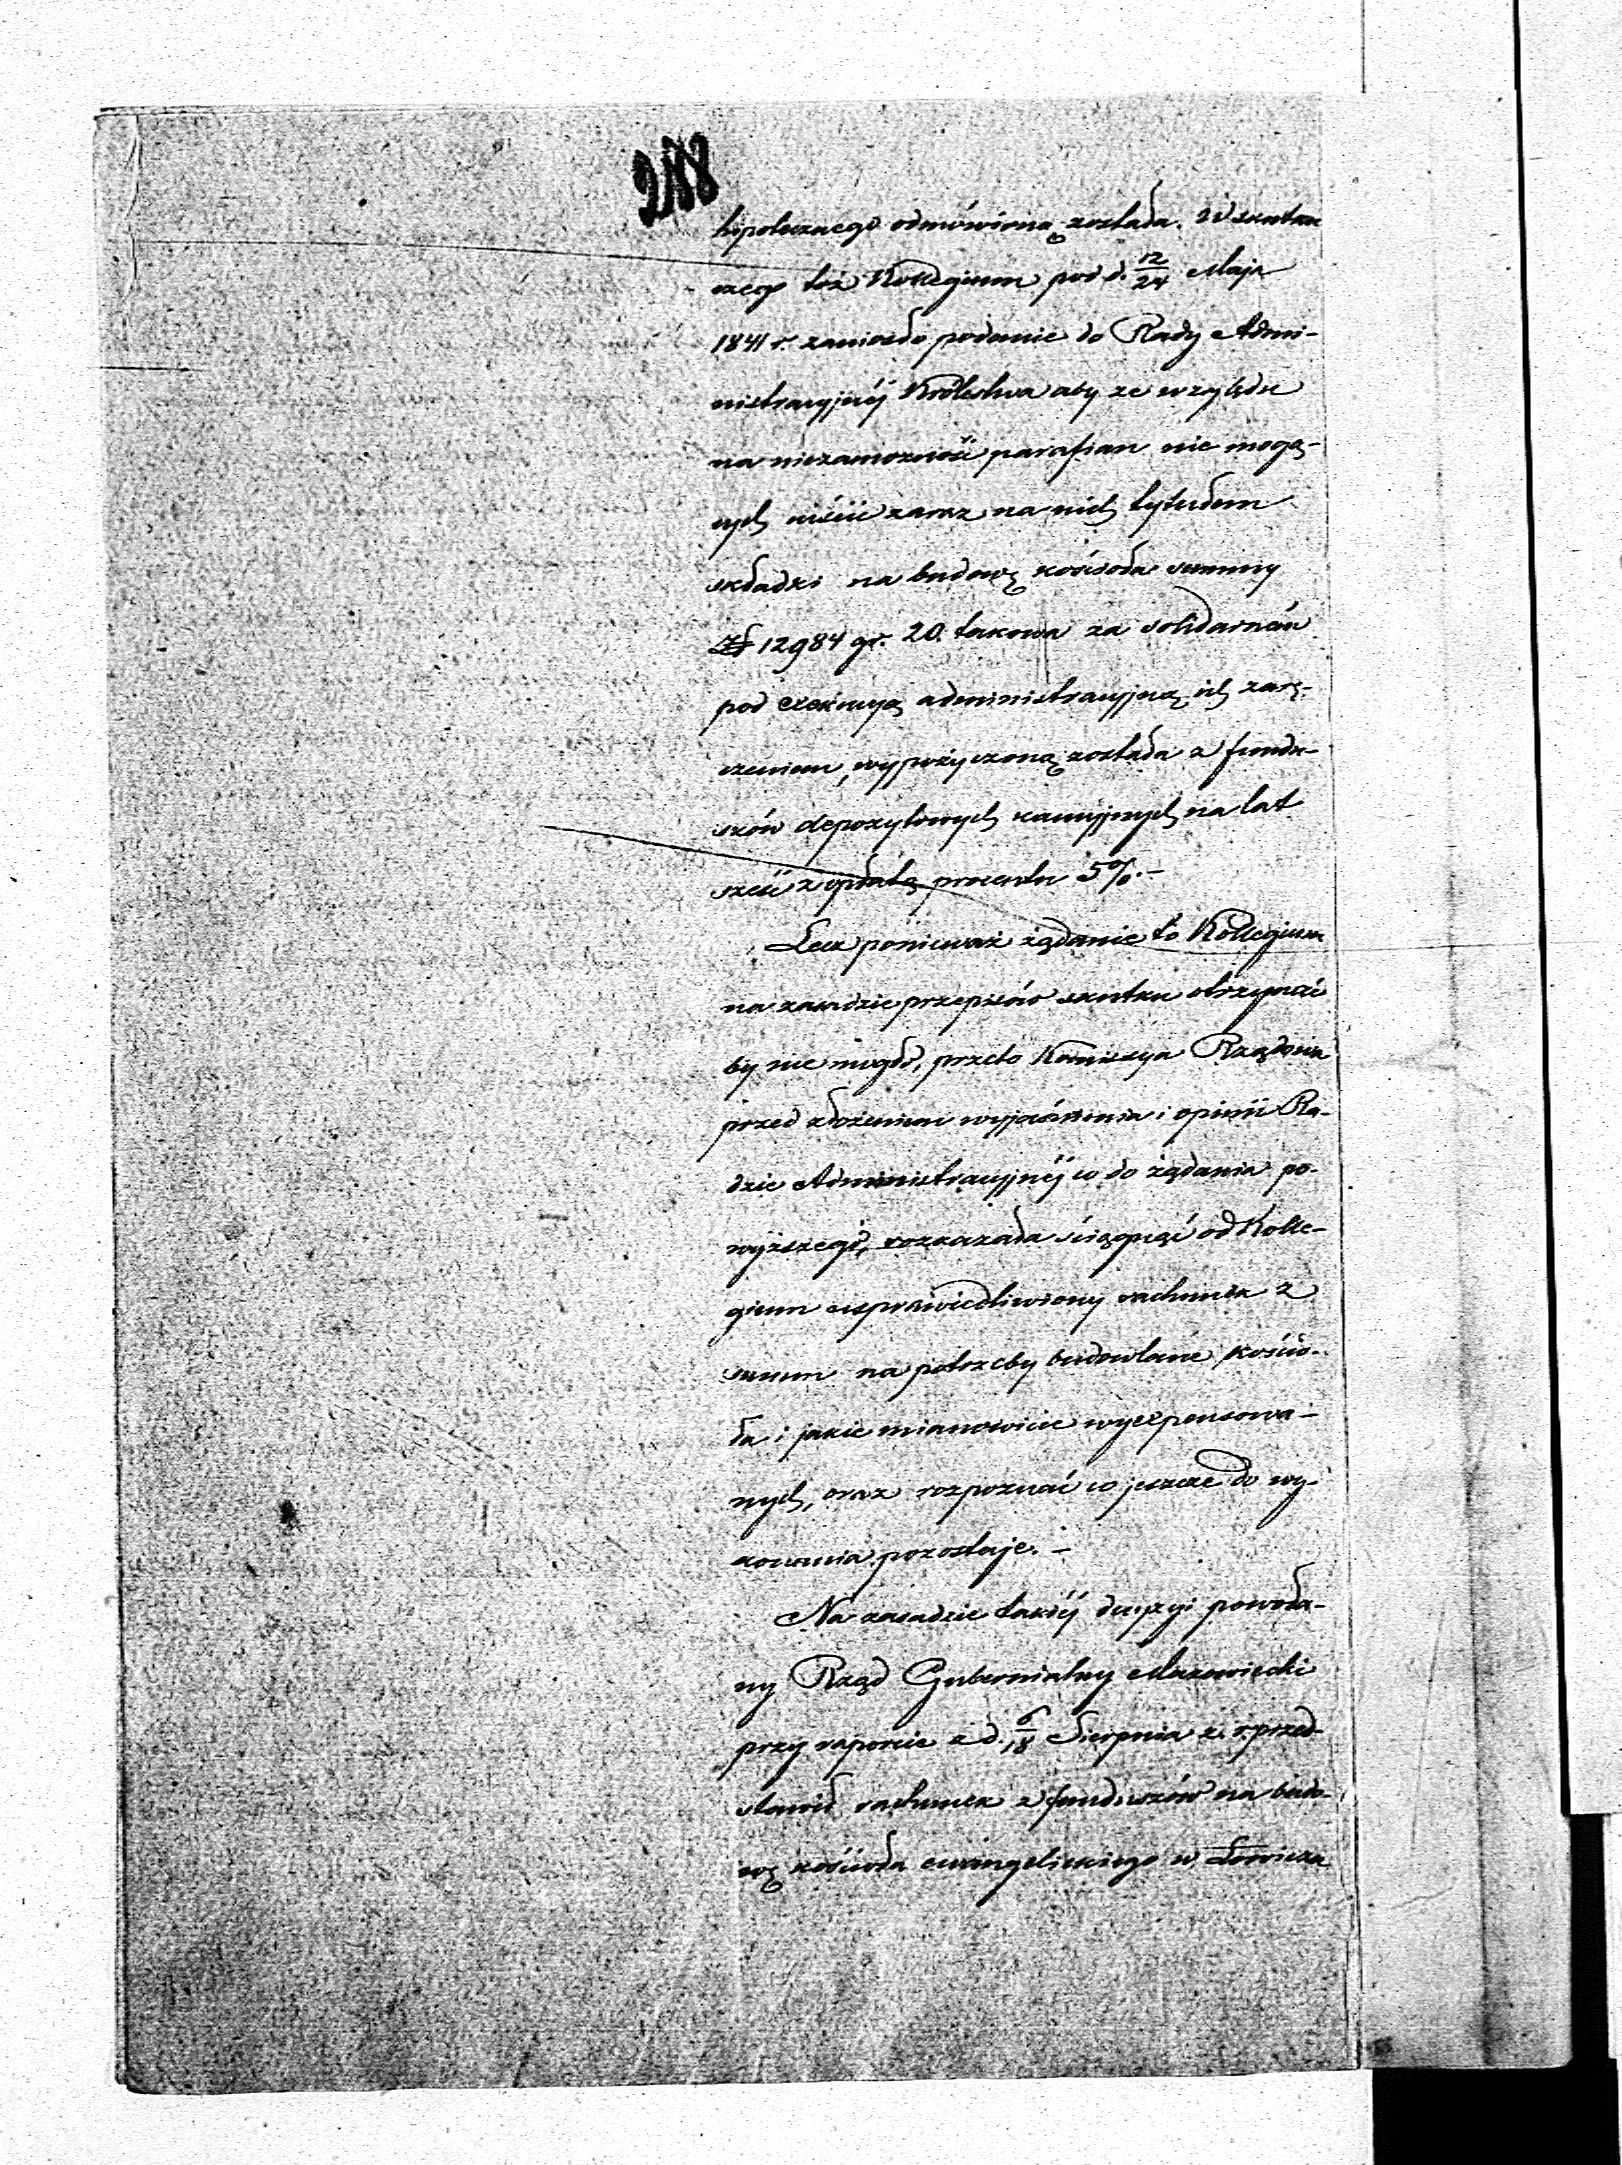 288
hipotecznego odmówioną została. W skutku
czego toż Kollegium pod d. 12/24 Maja
1841 r. zaniosło podanie do Rady Admi-
nistracyjnéj Królestwa aby ze względu
na niezamożność parafian nie mogą-
cych uiścić zaraz na nich tytułem
składki na budowę kościoła summy
Zł 12984 gr. 20. takowa za solidarném
pod exekucyą administracyjną ich zarę-
czeniem, wypożyczoną została z fundu-
szów depozytowych kaucyjnych na lat
sześć z opłatą procentu 5%.–
Lecz ponieważ żądanie to Kollegium
na zasadzie przepisów skutku otrzymać
by nie mogło, przeto Kommissya Rządowa
przed złożeniem wyjaśnienia i opinii Ra-
dzie Administracyjnéj co do żądania po-
wyższego, rozkazała ściągnąć od Kolle-
gium usprawiedliwiony rachunek z
summ na potrzeby budowlane kościo-
ła i jakie mianowicie wyexpensowa-
nych, oraz rozpoznać co jeszcze do wy-
konania pozostaje. –
Na zasadzie takiéj decyzyi powoła-
ny Rząd Gubernialny Mazowiecki
przy raporcie z d. 6/18 Sierpnia z. r. przed-
stawił rachunek z funduszów na budo-
wę kościoła ewangelickiego w Łowiczu